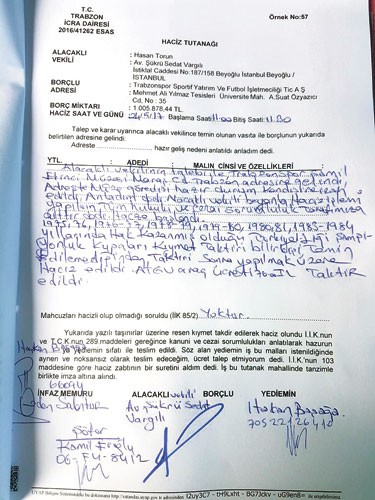 T.C.
TRABZON
İCRA DAİRESİ
2016/41262 ESAS
Örnek No:57
HACİZ TUTANAĞI
ALACAKLI : Hasan Torun
VEKİLİ : Av. Şükrü Sedat Vargılı
İstiklal Caddesi No:187/158 Beyoğlu İstanbul Beyoğlu /
İSTANBUL
BORÇLU : Trabzonspor Sportif Yatırım Ve Futbol İşletmeciliği Tic A Ş
ADRESİ : Mehmet Ali Yılmaz Tesisleri Üniversite Mah. A.Suat Özyazıcı
Cd, No : 35
BORÇ MİKTARI : 1.005.878,44 TL
HACİZ SAAT VE GÜNÜ : Başlama Saati 11:00 Bitiş Saati: 11.30
Talep ve karar uyarınca alacaklı vekilince temin olunan vasıta ile borçlunun yukarıda
belirtilen adresine gelindi.
Adreste hazır geliş nedeni anlatıldı anladım dedi.
YTL. ADEDİ MALIN CİNSİ VE ÖZELLİKLERİ :
Alacaklı vekilinin talebi ile Trabzonspor Şamil
Ekinci Müzesi Maraş Cd Trabzon adresine gelindi
Adreste Müze görevlisi hazır durum kendisine izah
edildi. Anladım dedi. Alacaklı vekili beyanla Haciz işlemi
yapılsın Tüm hukuki ve cezai sorumluluk tarafımıza
aittir dedi. Hacize
1975, 76, 1976-77, 1978-79, 1979-80, 1980-81, 1983-1984
yıllarında Hak Kazanmış olduğu Türkiye Ligi Şampi-
yonluk Kupaları Kıymet Taktiri bilirkişi Temin
Edilemediğinden Taktiri Sonra yapılmak üzere
Haciz edildi. araç ücreti TL Taktir
edildi.
Mahcuzları hacizli olup olmadığı soruldu (İİK 85/2) Yoktur.
Yukarıda yazılı taşınırlar üzerine resen kıymet takdir edilerek haciz olundu İ.İ.K.nun
ve T.C.K.nun 289.maddeleri gereğince kanuni ve cezai sorumlulukları anlatılarak hazurun
ya yediemin sıfatı ile teslim edildi. Söz alan yediemin iş bu malları istenildiğinde
aynen ve noksansız olarak teslim edeceğim, ücret talep etmiyorum dedi. İ.İ.K.nun 103
maddesine göre haciz zabtının bir suretini aldım dedi. İş bu tutanak mahallinde tanzimle
birlikte imza altına alındı.
66094
İNFAZ MEMURU ALACAKLI vekili BORÇLU YEDİEMİN
Av. Şükrü Sedat
Vargılı
70522126412
Şoför
Kamil Eroğlu